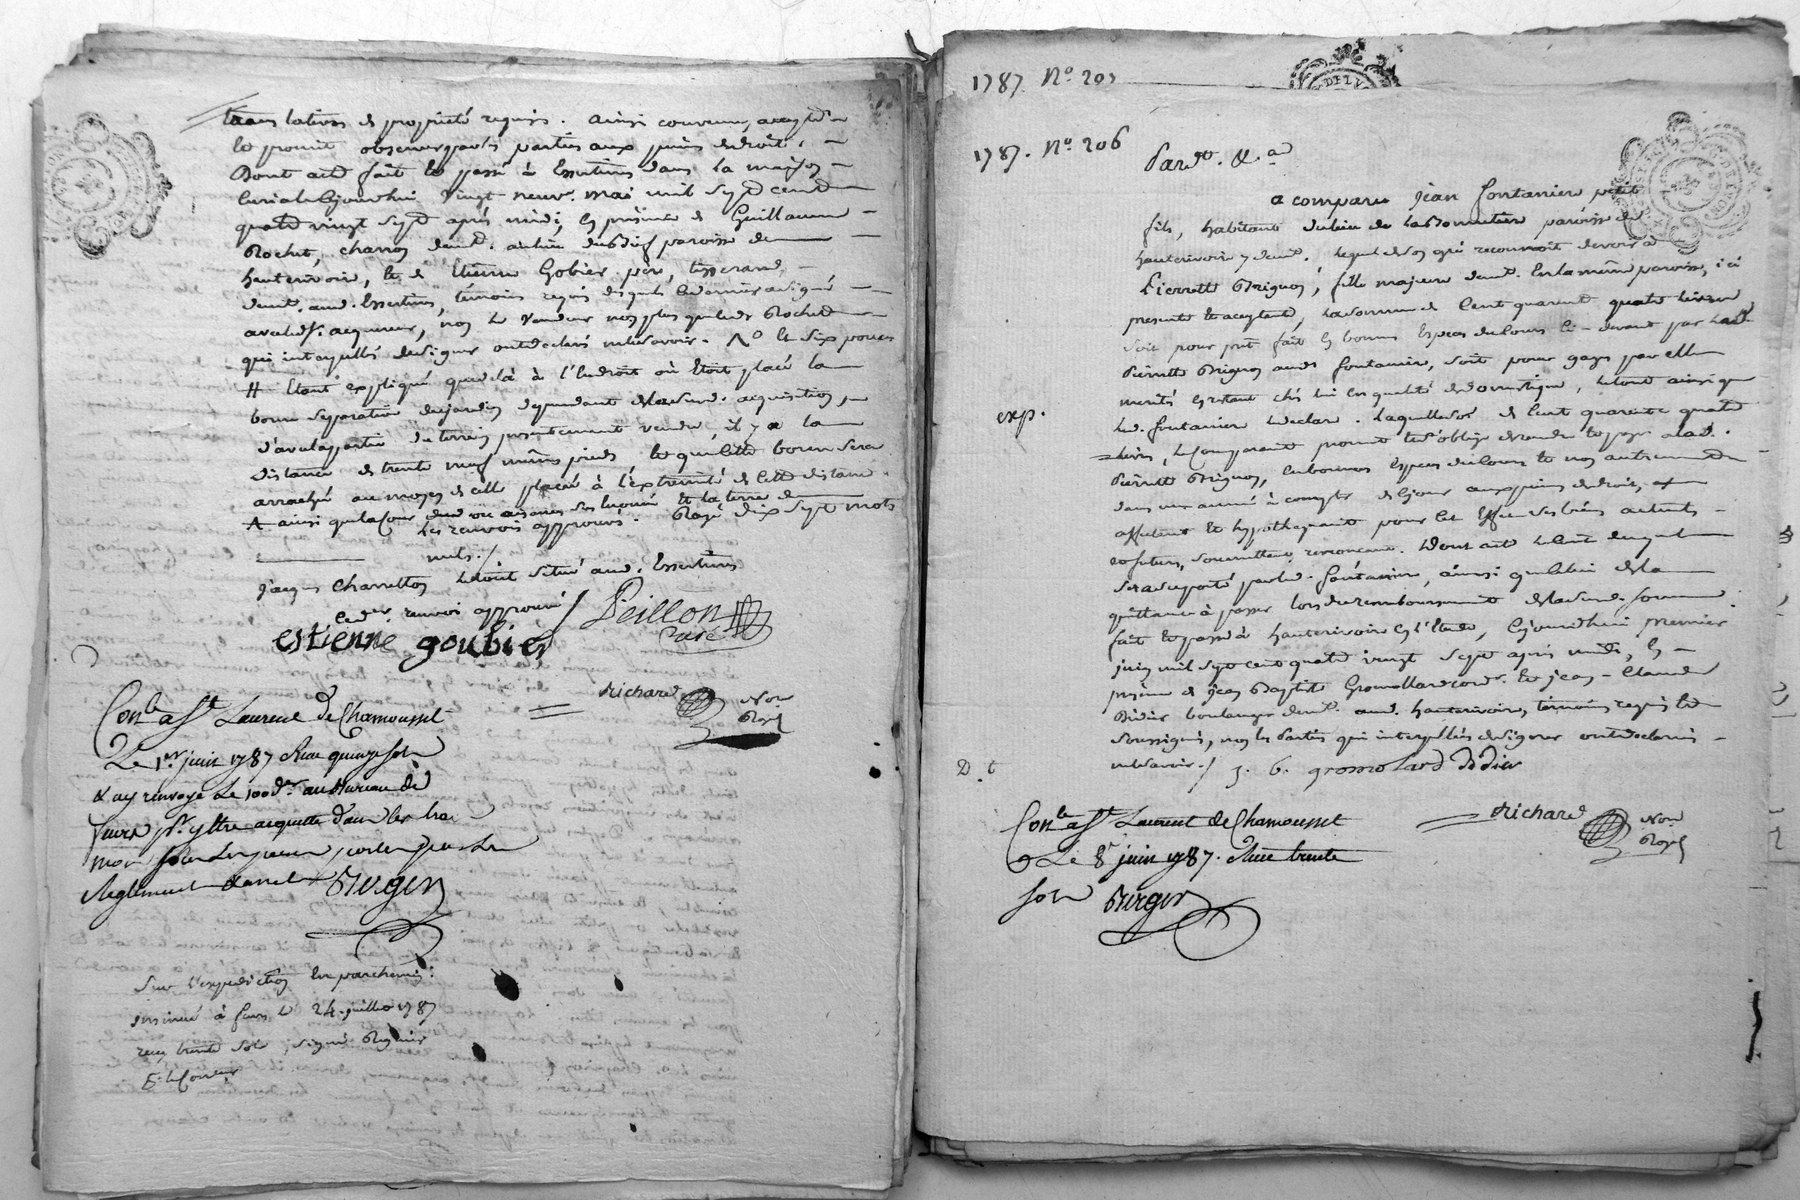 translatives de propriété requis. ainsi convenu, accepté
et promit observer par les parties aux peines de droit,
Dont acte fait et passé à Essertines dans la maison
curiale cejourd'hui vingt neuf mai mil sept cent
quatre vingt sept après midi, en présence de Guillaume
Rochet, charron demt. au lieu paroisse de
hauterivoire, et de Etienne Gobier père, tisserand,
demt. aud. Essertines, témoins requis desquels le dernier a signé
avec led. sr. acquereur, non le vendeur non plus que led. Rochet
qui interpellés de signer ont déclaré ne le savoir. No et six pouces
# Etant expliqué que de là à l'endroit où étoit placé la
borne séparative du jardin dépendant de lad. acquisition,
d'avec la partie de terrein présentement vendue il y a la
distance de trente neuf mêmes pieds et qu'icelle borne sera
arrachée au moyen de celle placée à l'extremité de cette distance.
A ainsi que la cour et la terre de
les renvois approuvés. Rayé dix sept mots
nuls./
jacques Charretton le tout situé aud. Essertines
ce der. renvoi approuvé /
Peillon
Curé
estienne goubier
Richard
Nore
Royal
Conlé a St Laurent de Chamousset
Le 1er juin 1787 Reçu quinze sols
& ay renvoyé le 100de. au Bureau de
feurs pr. y être acquitté dans les trois
mois sous les peines portées par les
Reglement & arrets Berger
Sur l'expédition en parchemin:
insinué à feurs le 24. juillet 1787
reçu trente sols, signé Regnier
1787 No 20
1787. No. 206
Pardt. &.a
a comparu jean fontanier petit
fils, habitant du lieu de la Bonnetier paroisse de
hauterivoire y demt. lequel de son gré reconnoit devoir à
Pierrette Brignon, fille majeure demt. en la même paroisse, ici
presente et aceptante, la somme de Cent quarente quatre livres,
soit pour prêt fait en bonnes Especes du cours ci-devant par lad.
Pierrette Brignon aud. fontanier, soit pour gages par elle
merités en restant chés lui en qualité de domestique, le tout ainsi que
led. fontanier le déclare. laquelle somme de Cent quarente quatre
exp.
livres, le comparant promet et s'oblige de rendre et payer à lad.
Pierrette Brignon, en bonnes especes du cours et non autrement
dans une année à compter de cejour aux peines de droit,
affectant et hypothequant pour cet Effet ses biens actuels
et futurs, soumettant, renonceant. Dont acte
sera supporté par led. fontanier, ainsi que celui de la
quittance à passer lors du remboursement de lad. somme
fait et passé à hauterivoire en l'Etude, cejourdhui premier
juin mil sept cent quatre vingt sept après midi, en
présence de jean Baptiste Gromollard cord. et jean-Claude
Didier boulanger demt. aud. hauterivoire, témoins requis et
soussignés, non les Parties qui interpellées de signer ont déclaré
ne le savoir./ j. b. gromolard Didier
D. t
Richard
Nore
Royal
Conlé a St Laurent de Chamousset
Le 8e juin 1787. Reçu trente
sols Berger